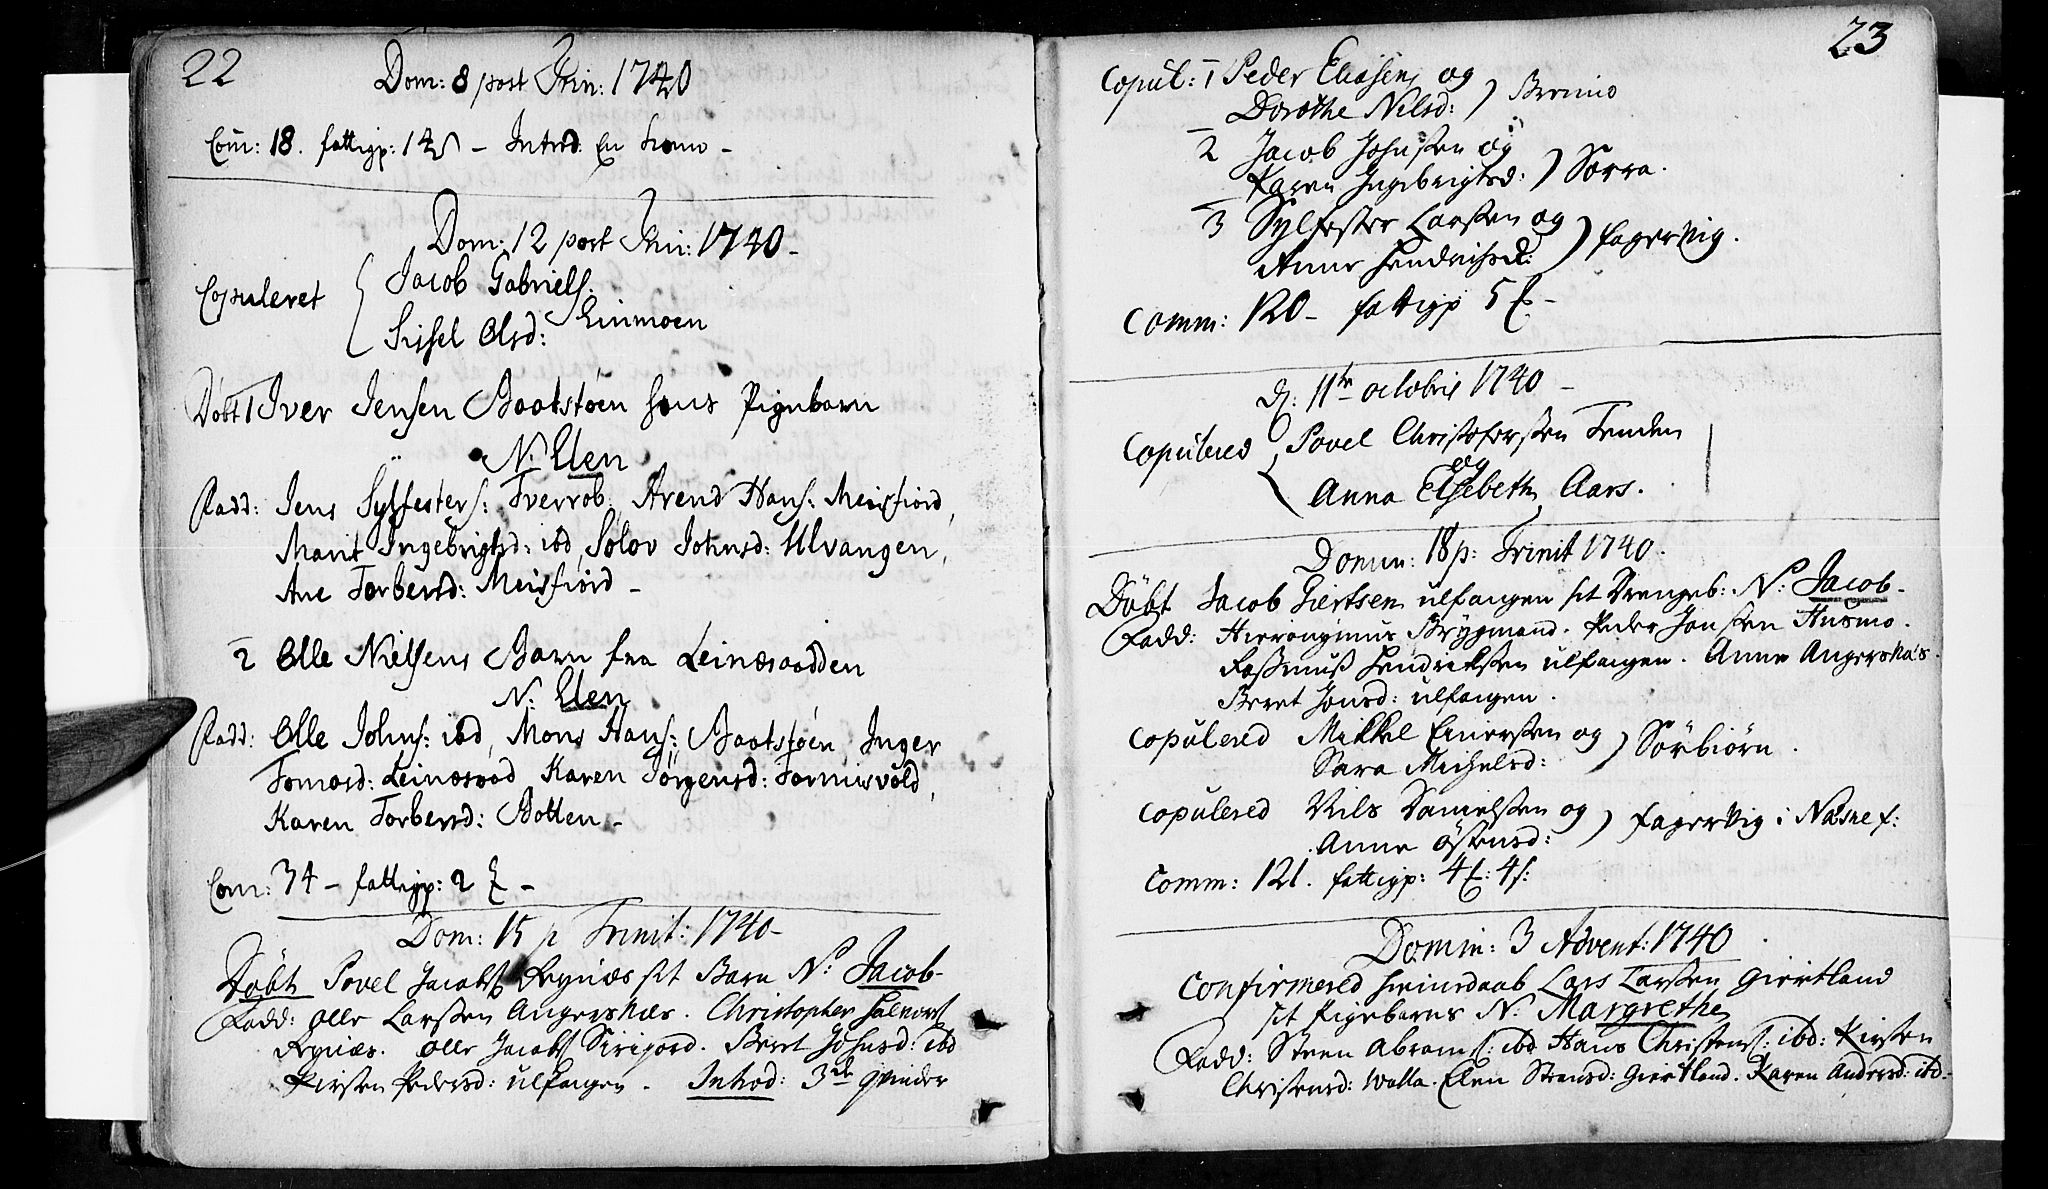 22
Dom: 8 post Trin: 1740
Com: 18. fattigp: 1 - Introd: En Kone -
Dom: 12 post Trin: 1740 -
Copuleret
Jacob Gabriels.
Sissel Olsd:
Dobt 1 Iver Jensen Baatstøen hans Pigebarn
N: Elen
Fadd: Jens Sylfesters: Tverrob, Arend Hans: Meisfiord,
Marit Ingebrigtsd: ibd, Solov Johnsd: Ulvangen,
Ane Torbersd: Meisfiord -
2 Olle Nielsens Barn fra Leinæsodden
N: Elen
Fadd: Olle Johns: ibd, Mons Hans: Baatstøen Inger
Tomasd: Leinæsod, Karen Jörgensd: Formisvold,
Karen Torbersd: Botten -
Com: 34 - fattigp: 2 -
Dom: 15 p Trinit: 1740 -
Döbt Povel Jacobs Rynæs sit Barn N: Jacob -
Fadd: Olle Larssen Angersnæs. Christopher Halvors
Rynæs. Olle Jacobs Beret Johnsd: ibd
Kirsten Pedersd: Ulfangen - Introd: 3de Qvinder
23
Copul: 1 Peder Eliasen og
Dorothe Nilsd:
2 Jacob Johnssen og
Karen Ingebrigtsd: ) Sørra.
3 Sylfester Larssen og
Anne Hendrichsd: ) Fagervig.
Comm: 120 - fattigp 5 -
d: 11te octobris 1740 -
Copulered Povel Christofersen Tenden
og
Anna Elsebeth Aars.
Domin: 18 p: Trinit 1740.
Döbt Jacob Giertsen Ulfangen sit Drengeb: N: Jacob -
Fadd: Hieronymus Brygmand. Peder Janssen Husmo.
Rassmus Hendrikssen Ulfangen. Anne Angersnæs.
Beret Jonsd: Ulfangen.
Copulered Mikkel Einerssen og
Sara Michelsd: ) Sørbiörn.
Copulered Nils Danielssen og
Anne Östensd: ) Fagervig i Næsne f:
Comm: 121. fattigp: 4
Domin: 3 Advent: 1740
Confirmered hiemedaab Lars Larssen Giertland
sit Pigebarns N: Margrethe
Fadd: Steen Abrams: ibd Hans Christens: ibd: Kirsten
Christensd: Walla. Elen Stensd: Giertland. Karen Andersd: ibd -